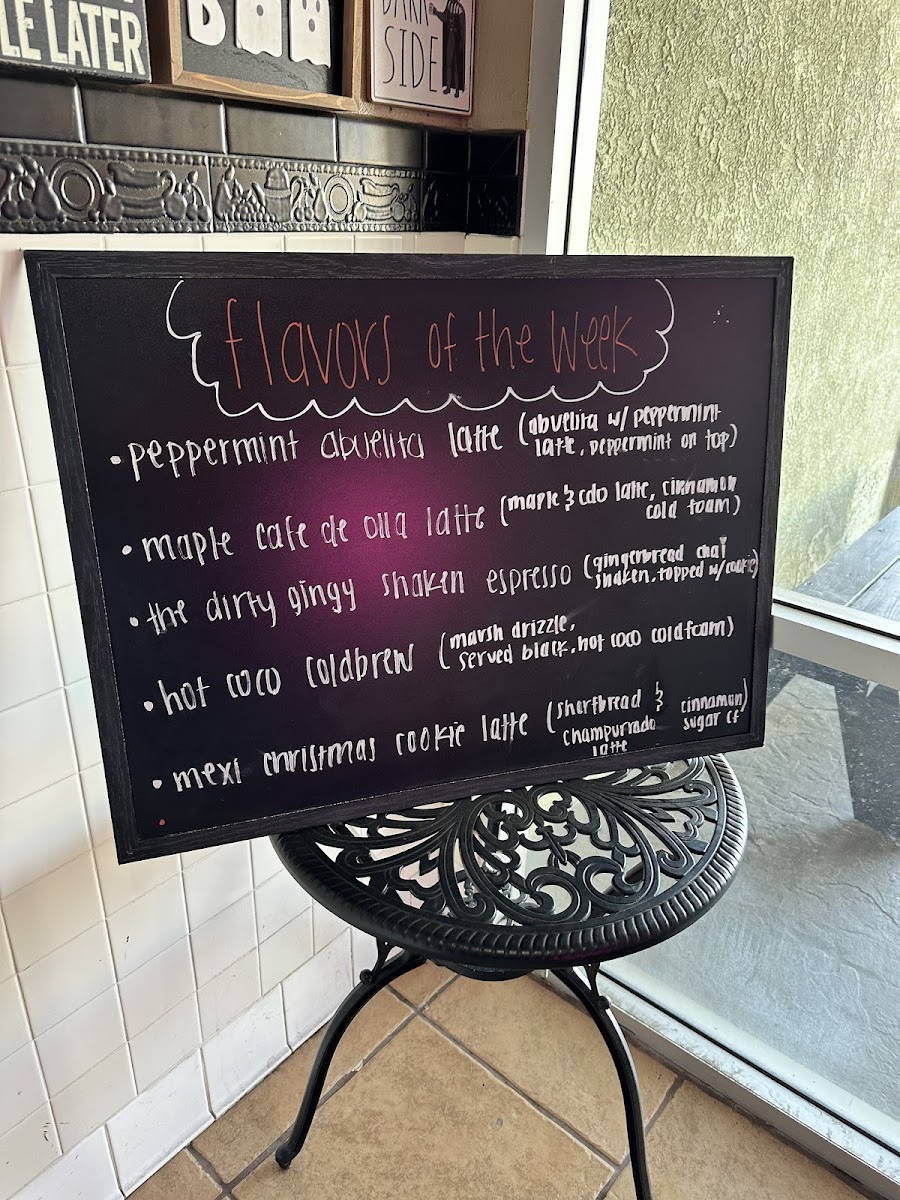 LE LATER
BOO
DARK
SIDE
flavors of the week
• peppermint abuelita latte (abuelita w/ peppermint
latte, peppermint on top)
• maple cafe de olla latte (maple & cdo latte, cinnamon
cold foam)
• the dirty gingy shaken espresso (gingerbread chai
shaken, topped w/ cookie)
• hot coco coldbrew (marsh drizzle,
served black, hot coco coldfoam)
• mexi christmas cookie latte (shortbread & cinnamon)
champurrado sugar cf
latte